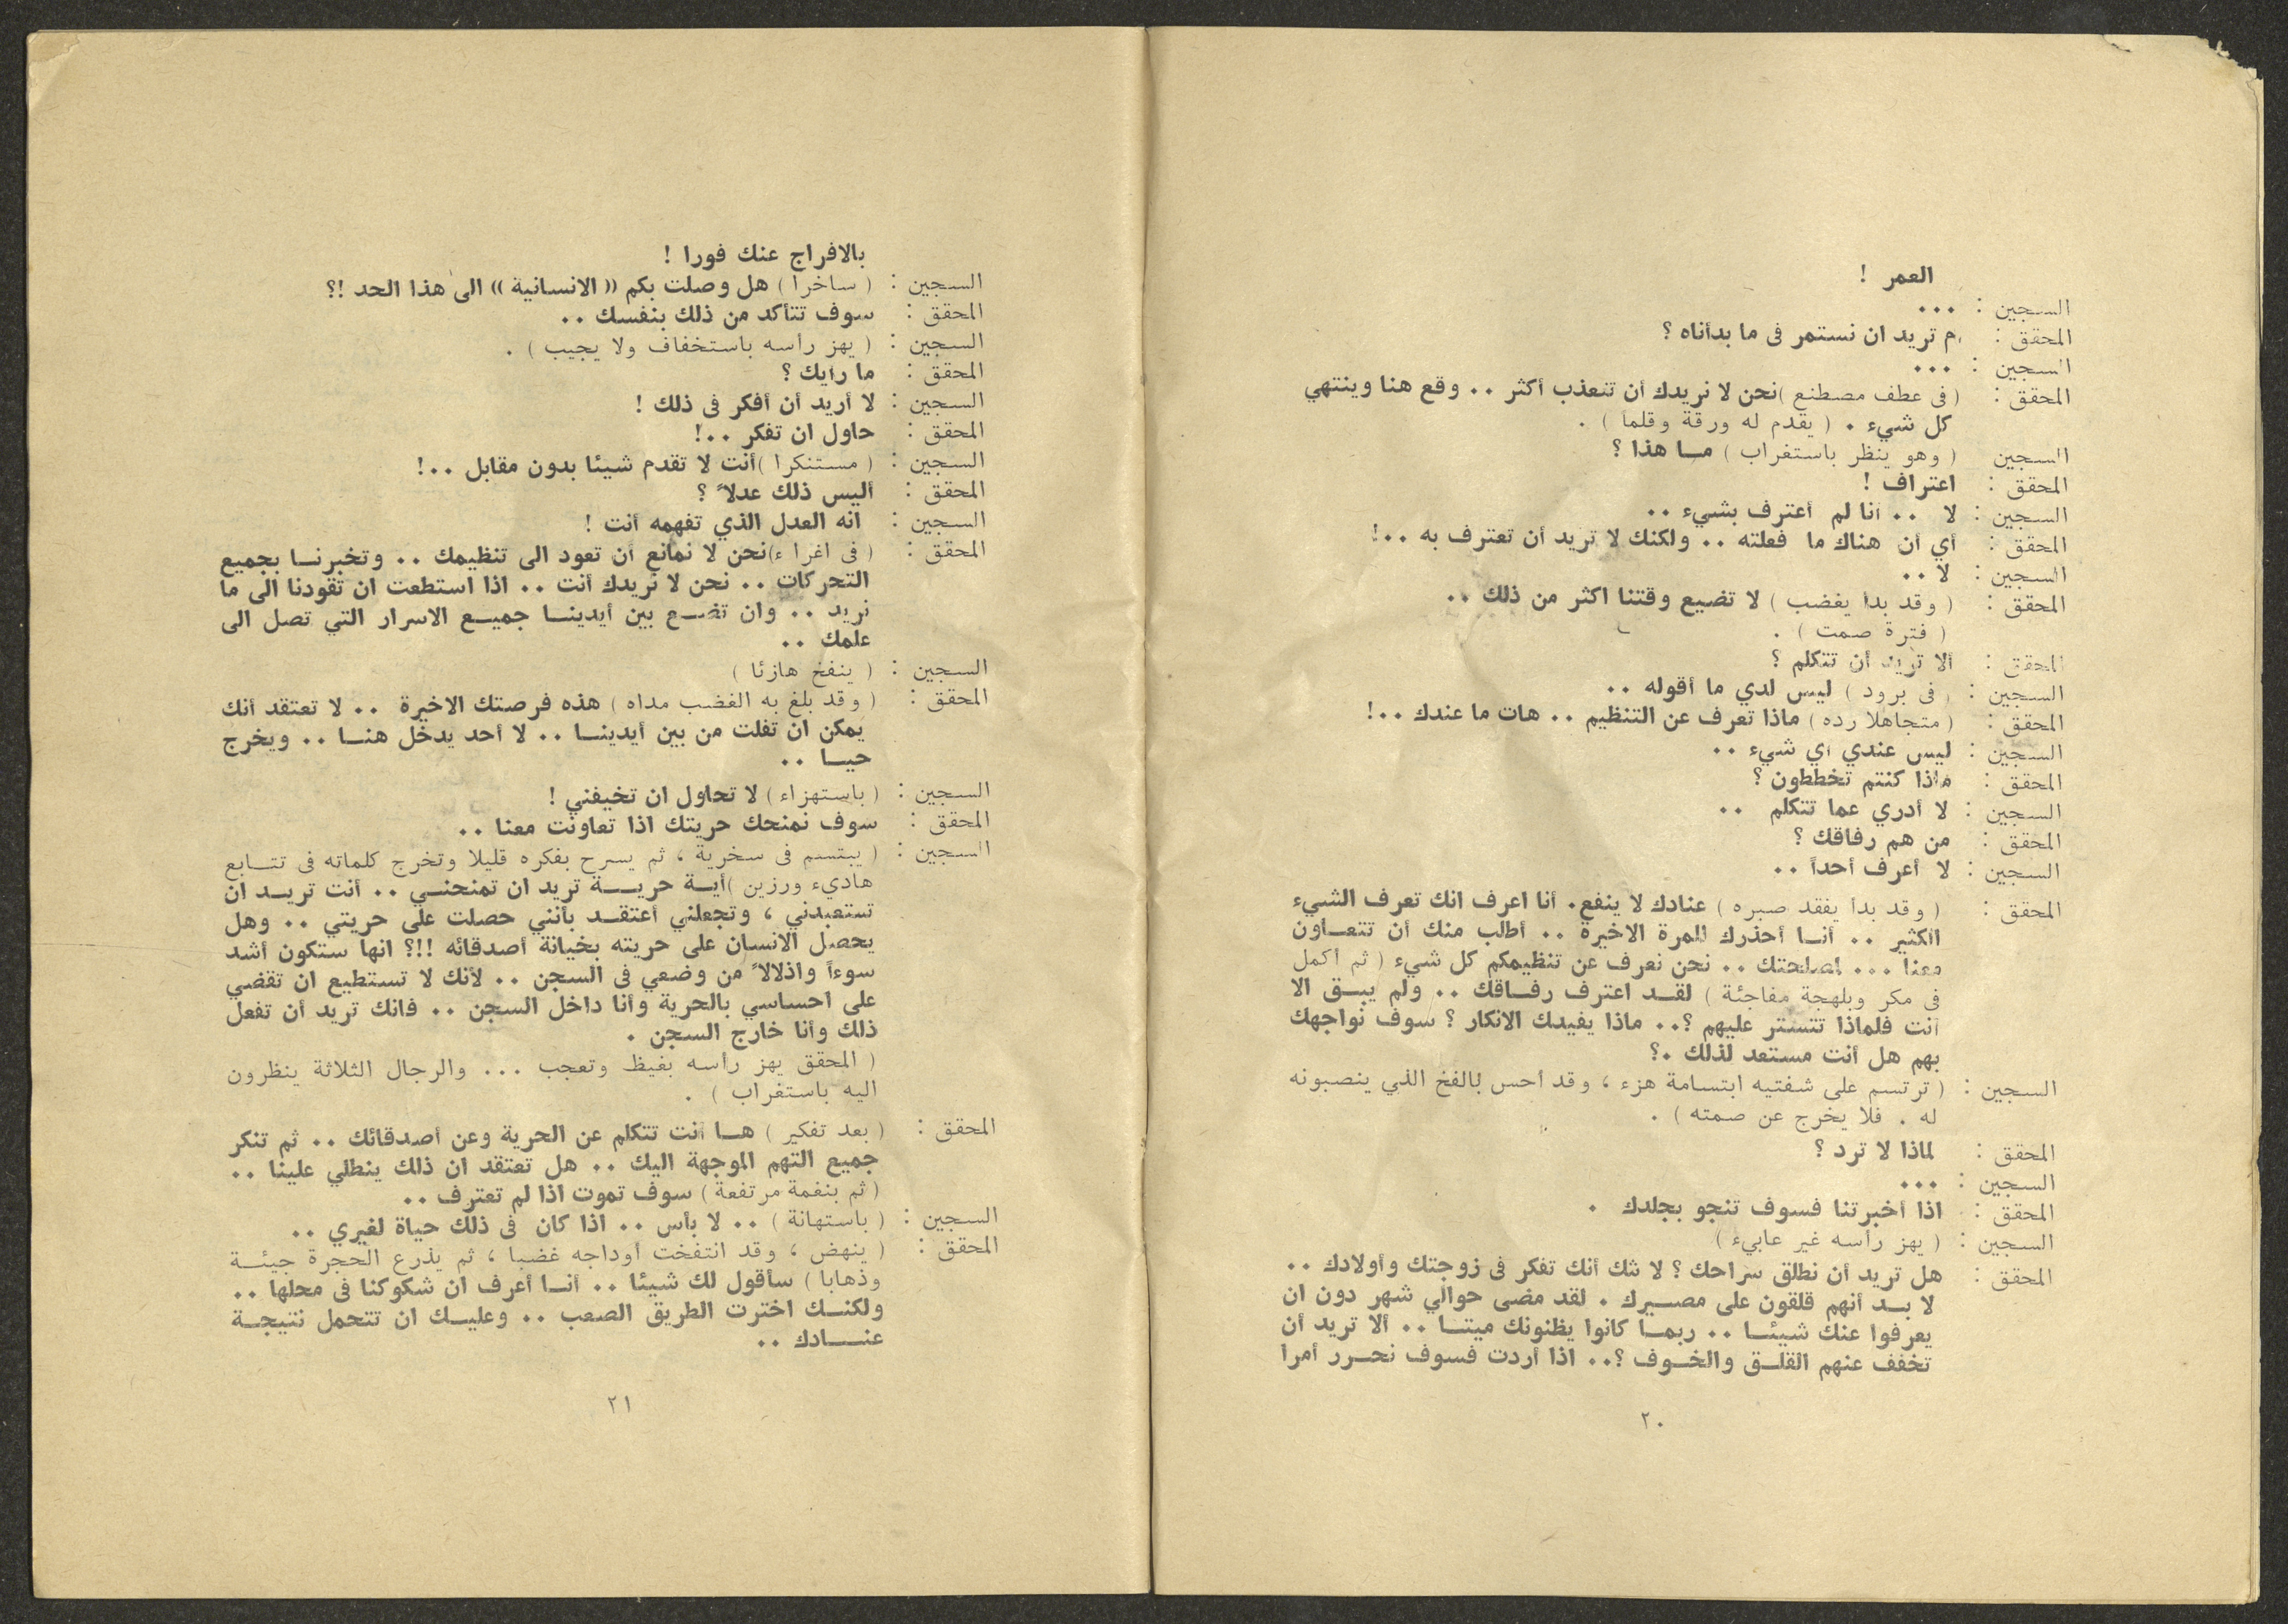 العمر !
السجين : ...
المحقق : م تريد ان نستمر فى ما بدأناه ؟
السجين : ...
المحقق : ( فى عطف مصطنع )نحن لا نريدك أن تتعذب أكثر .. وقع هنا وينتهي
كل شيء . ( يقدم له ورقة وقلما ) .
السجين ( وهو ينظر باستغراب ) مـا هذا ؟
المحقق : اعتراف !
السجين : لا .. أنا لم أعترف بشيء ..
المحقق : أي أن هناك ما فعلته .. ولكنك لا تريد أن تعترف به ..!
السجين : لا ..
المحقق : ( وقد بدأ يغضب ) لا تضيع وقتنا اكثر من ذلك ..
( فترة صمت ) .
المحقق : ألا تريد أن تتكلم ؟
السجين : ( فى برود ) ليس لدي ما أقوله ..
المحقق : ( متجاهلا رده ) ماذا تعرف عن التنظيم .. هات ما عندك ..!
السجين : ليس عندي أي شيء ..
المحقق : ماذا كنتم تخططون ؟
السجين : لا أدري عما تتكلم ..
المحقق : من هم رفاقك ؟
السجين : لا أعرف أحداً ..
المحقق : ( وقد بدأ يفقد صبره ) عنادك لا ينفع. أنا اعرف انك تعرف الشيء
الكثير .. أنـا أحذرك للمرة الاخيرة .. أطلب منك أن تتعـاون
معنا ... لمصلحتك .. نحن نعرف عن تنظيمكم كل شيء ( ثم أكمل
فى مكر وبلهجة مفاجئة ) لقـد اعترف رفـاقك .. ولم يبـق الا
أنت فلماذا تتستر عليهم ؟.. ماذا يفيدك الانكار ؟ سوف نواجهك
بهم هل أنت مستعد لذلك .؟
السجين : ( ترتسم على شفتيه ابتسامة هزء ، وقد أحس بالفخ الذي ينصبونه
له . فلا يخرج عن صمته ) .
المحقق : لماذا لا ترد ؟
السجين : ...
المحقق : اذا أخبرتنا فسوف تنجو بجلدك .
السجين : ( يهز رأسه غير عابيء )
المحقق : هل تريد أن نطلق سراحك ؟ لا شك أنك تفكر فى زوجتك وأولادك ..
لا بـد أنهم قلقون على مصـيرك . لقد مضى حوالي شهر دون ان
يعرفوا عنك شيئـا .. ربمـا كانوا يظنونك ميتـا .. ألا تريد أن
تخفف عنهم القلـق والخـوف ؟.. اذا أردت فسوف نحـرر أمرا
٢٠
بالافراج عنك فورا !
السجين : ( ساخرا ) هل وصلت بكم « الانسانية » الى هذا الحد !؟
المحقق : سوف تتأكد من ذلك بنفسك ..
السجين : ( يهز رأسه باستخفاف ولا يجيب ) .
المحقق : ما رأيك ؟
السجين : لا أريد أن أفكر فى ذلك !
المحقق : حاول ان تفكر ..!
السجين : ( مستنكرا )أنت لا تقدم شيئا بدون مقابل ..!
المحقق : أليس ذلك عدلاً ؟
السجين : انه العدل الذي تفهمه أنت !
المحقق : ( فى اغراء )نحن لا نمانع أن تعود الى تنظيمك .. وتخبرنـا بجميع
التحركات .. نحن لا نريدك أنت .. اذا استطعت ان تقودنا الى ما
نريد .. وان تضـع بين أيدينـا جميـع الاسرار التي تصل الى
علمك ..
السجين : ( ينفخ هازئا )
المحقق : ( وقد بلغ به الغضب مداه ) هذه فرصتك الاخيرة .. لا تعتقد أنك
يمكن ان تفلت من بين أيدينـا .. لا أحد يدخل هنـا .. ويخرج
حيـا ..
السجين : ( باستهزاء ) لا تحاول ان تخيفني !
المحقق : سوف نمنحك حريتك اذا تعاونت معنا ..
السجين : ( يبتسم فى سخرية ، ثم يسرح بفكره قليلا وتخرج كلماته فى تتـابع
هاديء ورزين )أيـة حريـة تريد ان تمنحنـي .. أنت تريـد ان
تستعبدني ، وتجعلني أعتقـد بأنني حصلت على حريتي .. وهل
يحصل الانسان على حريته بخيانة أصدقائه !!؟ انها ستكون أشد
سوءاً واذلالاً من وضعي فى السجن .. لأنك لا تستطيع ان تقضي
على احساسي بالحرية وأنا داخل السجن .. فانك تريد أن تفعل
ذلك وأنا خارج السجن .
( المحقق يهز رأسه بغيظ وتعجب ... والرجال الثلاثة ينظرون
اليه باستغراب ) .
المحقق : ( بعد تفكير ) هـا أنت تتكلم عن الحرية وعن أصدقائك .. ثم تنكر
جميع التهم الموجهة اليك .. هل تعتقد ان ذلك ينطلي علينا ..
( ثم بنغمة مرتفعة ) سوف تموت اذا لم تعترف ..
السجين : ( باستهانة ) .. لا بأس .. اذا كان فى ذلك حياة لغيري ..
المحقق : ( ينهض ، وقد انتفخت أوداجه غضبا ، ثم يذرع الحجرة جيئـة
وذهابا ) سأقول لك شيئا .. أنـا أعرف ان شكوكنا فى محلها ..
ولكنـك اخترت الطريق الصعب .. وعليـك ان تتحمل نتيجـة
عنـادك ..
٢١